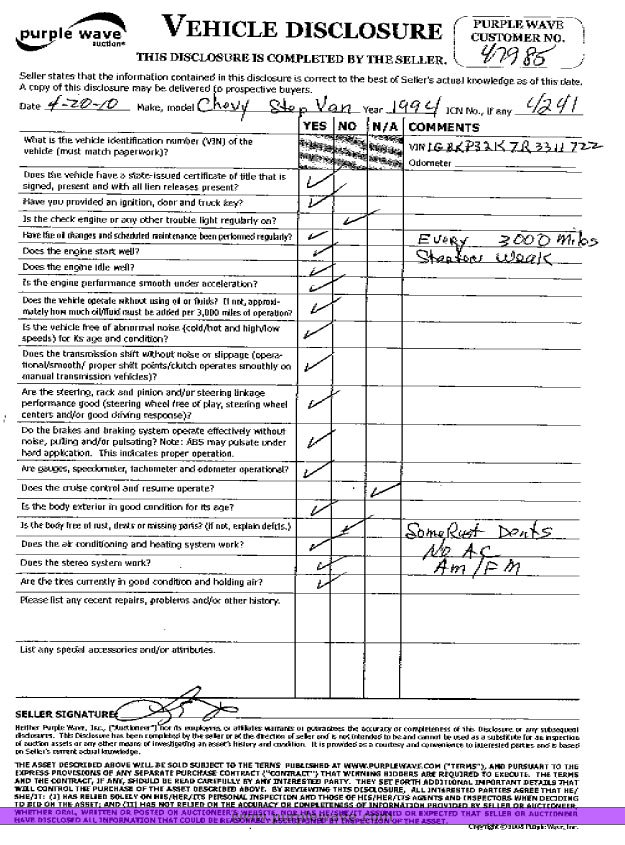 purple wave
auction
VEHICLE DISCLOSURE
THIS DISCLOSURE IS COMPLETED BY THE SELLER.
PURPLE WAVE
CUSTOMER NO.
47985
Seller states that the information contained in this disclosure is correct to the best of Seller's actual knowledge as of this date.
A copy of this disclosure may be delivered to prospective buyers.
Date 4-20-10 Make, model Chevy Step Van Year 1994 ICN No., if any 4241
YES NO N/A COMMENTS
What is the vehicle identification number (VIN) of the
vehicle (must match paperwork)?
VIN
Odometer
Does the vehicle have a state-issued certificate of title that is
signed, present and with all lien releases present?
Have you provided an ignition, door and truck key?
Is the check engine or any other trouble light regularly on?
Have the oil changes and scheduled maintenance been performed regularly?
Every 3000 Miles
Does the engine start well?
Weak
Does the engine idle well?
Is the engine performance smooth under acceleration?
Does the vehicle operate without using oil or fluids? If not, approxi-
mately how much oil/fluid must be added per 3,000 miles of operation?
Is the vehicle free of abnormal noise (cold/hot and high/low
speeds) for its age and condition?
Does the transmission shift without noise or slippage (opera-
tional/smooth/ proper shift points/clutch operates smoothly on
manual transmission vehicles)?
Are the steering, rack and pinion and/or steering linkage
performance good (steering wheel free of play, steering wheel
centers and/or good driving response)?
Do the brakes and braking system operate effectively without
noise, pulling and/or pulsating? Note: ABS may pulsate under
hard application. This indicates proper operation.
Are gauges, speedometer, tachometer and odometer operational?
Does the cruise control and resume operate?
Is the body exterior in good condition for its age?
Is the body free of rust, dents or missing parts? (if not, explain defects.)
Some Rust Dents
Does the air conditioning and heating system work?
No AC
Does the stereo system work?
Am/FM
Are the tires currently in good condition and holding air?
Please list any recent repairs, problems and/or other history.
List any special accessories and/or attributes.
SELLER SIGNATURE
Neither Purple Wave, Inc., ("Auctioneer") nor its employees or affiliates warrants or guarantees the accuracy or completeness of this Disclosure or any subsequent
disclosures. This Disclosure has been completed by the seller or at the direction of seller and is not intended to and cannot be used as a substitute for an inspection
of auction assets or any other means of investigating an asset's history and condition. It is provided as a courtesy and convenience to interested parties and is based
on Seller's current actual knowledge.
THE ASSET DESCRIBED ABOVE WILL BE SOLD SUBJECT TO THE TERMS PUBLISHED AT WWW.PURPLEWAVE.COM ("TERMS"), AND PURSUANT TO THE
EXPRESS PROVISIONS OF ANY SEPARATE PURCHASE CONTRACT ("CONTRACT") THAT WINNING BIDDERS ARE REQUIRED TO EXECUTE. THE TERMS
AND THE CONTRACT, IF ANY, SHOULD BE READ CAREFULLY BY ANY INTERESTED PARTY. THEY SET FORTH ADDITIONAL IMPORTANT DETAILS THAT
WILL CONTROL THE PURCHASE OF THE ASSET DESCRIBED ABOVE. BY REVIEWING THIS DISCLOSURE, ALL INTERESTED PARTIES AGREE THAT HE/
SHE/IT: (I) HAS RELIED SOLELY ON HIS/HER/ITS PERSONAL INSPECTION AND THOSE OF HIS/HER/ITS AGENTS AND INSPECTORS WHEN DECIDING
TO BID ON THE ASSET; AND (II) HAS NOT RELIED ON THE ACCURACY OR COMPLETENESS OF INFORMATION PROVIDED BY SELLER OR AUCTIONEER,
WHETHER ORAL, WRITTEN OR POSTED ON AUCTIONEER'S WEBSITE, NOR HAS HE/SHE/IT ASSUMED OR EXPECTED THAT SELLER OR AUCTIONEER
HAVE DISCLOSED ALL INFORMATION THAT COULD BE INSPECTION OF THE ASSET.
Copyright © 2008 Purple Wave, Inc.